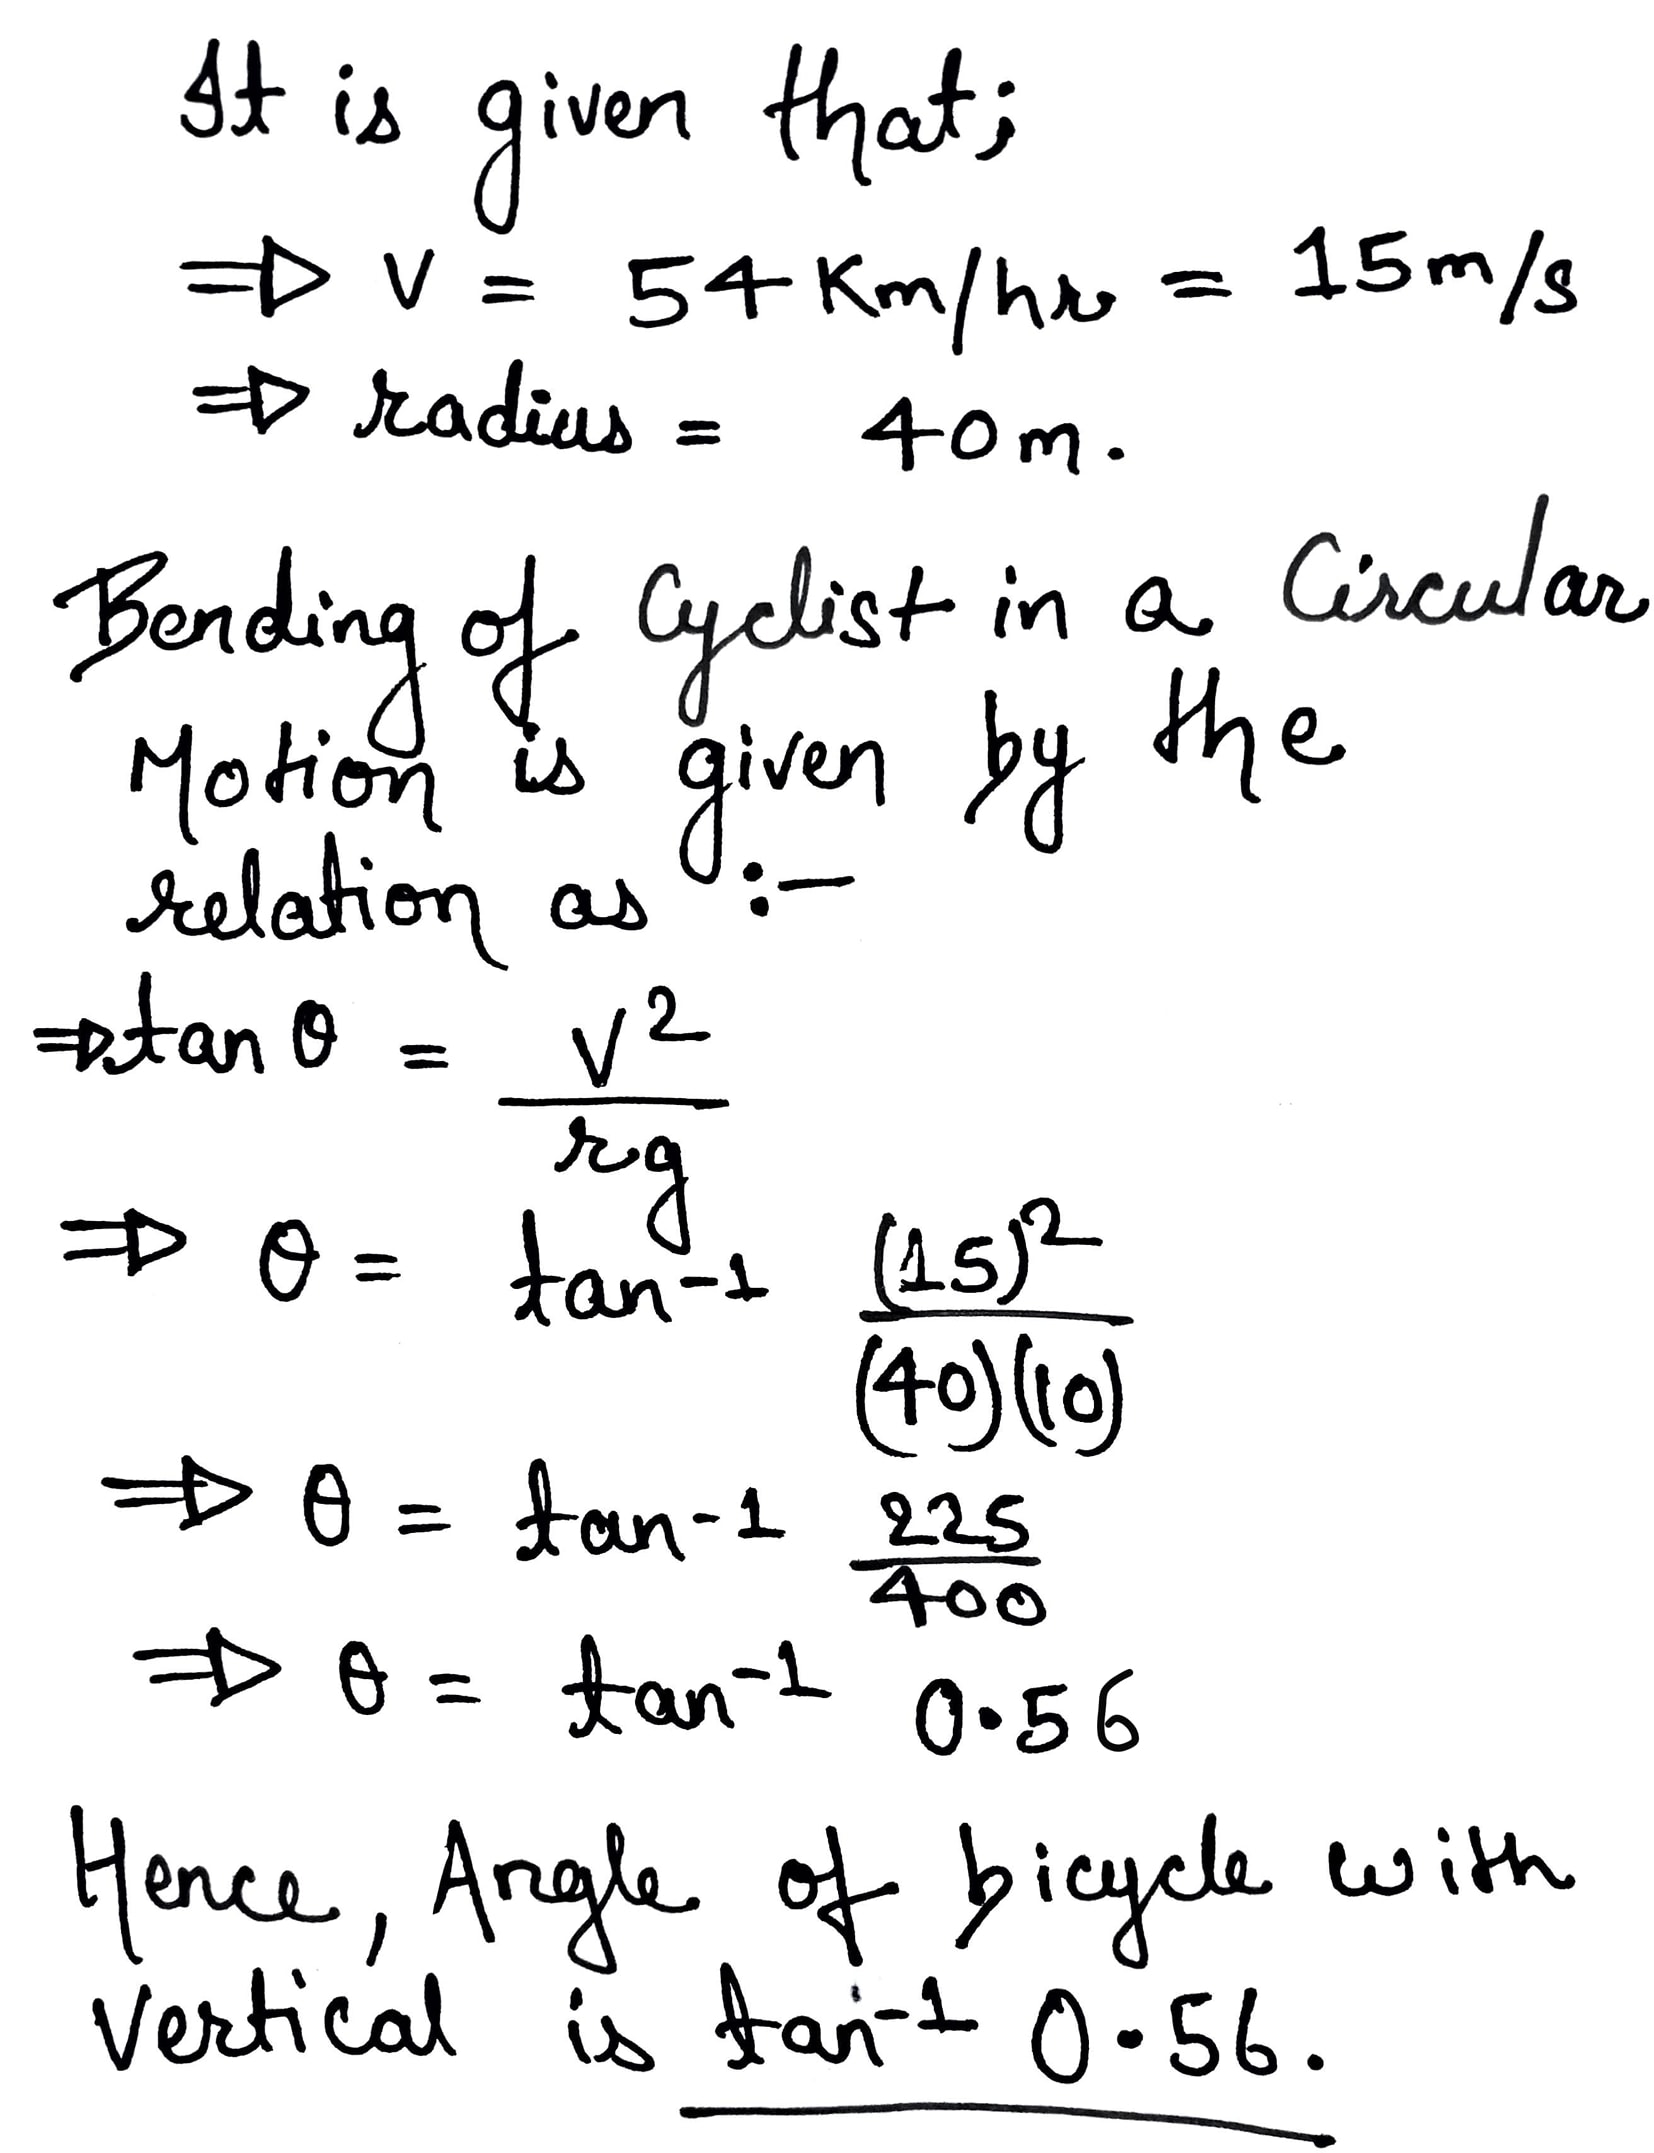 It is given that;
⇒ V = 54 Km/hr = 15m/s
⇒ radius = 40m.
Bending of Cyclist in a Circular
Motion is given by the
relation as :-
⇒ tan θ = v²/rg
⇒ θ = tan-1 (15)²/(40)(10)
⇒ θ = tan-1 225/400
⇒ θ = tan⁻¹ 0.56
Hence, Angle of bicycle with
Vertical is tan⁻¹ 0.56.